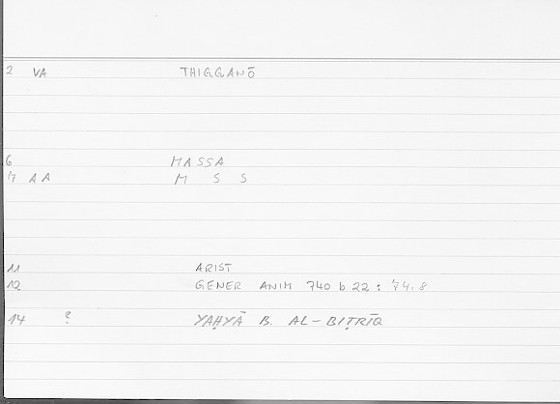 2 VA THIGGANŌ
6 MASSA
7 AA M S S
11 ARIST
12 GENER ANIM 740 b 22 : 74.8
14 ? YAḤYĀ B. AL-BIṬRĪQ